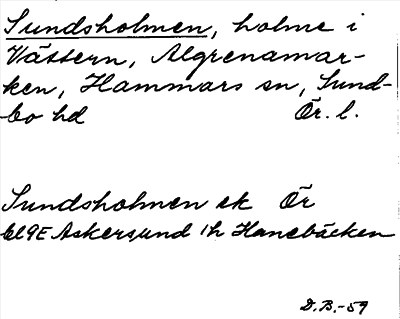 Sundsholmen, holme i
Vättern, Algrenamar-
ken, Hammars sn, Sund-
bo hd Ör. l.
Sundsholmen ek Ör
bl 9E Askersund 1h Hanebäcken
D.B.-59